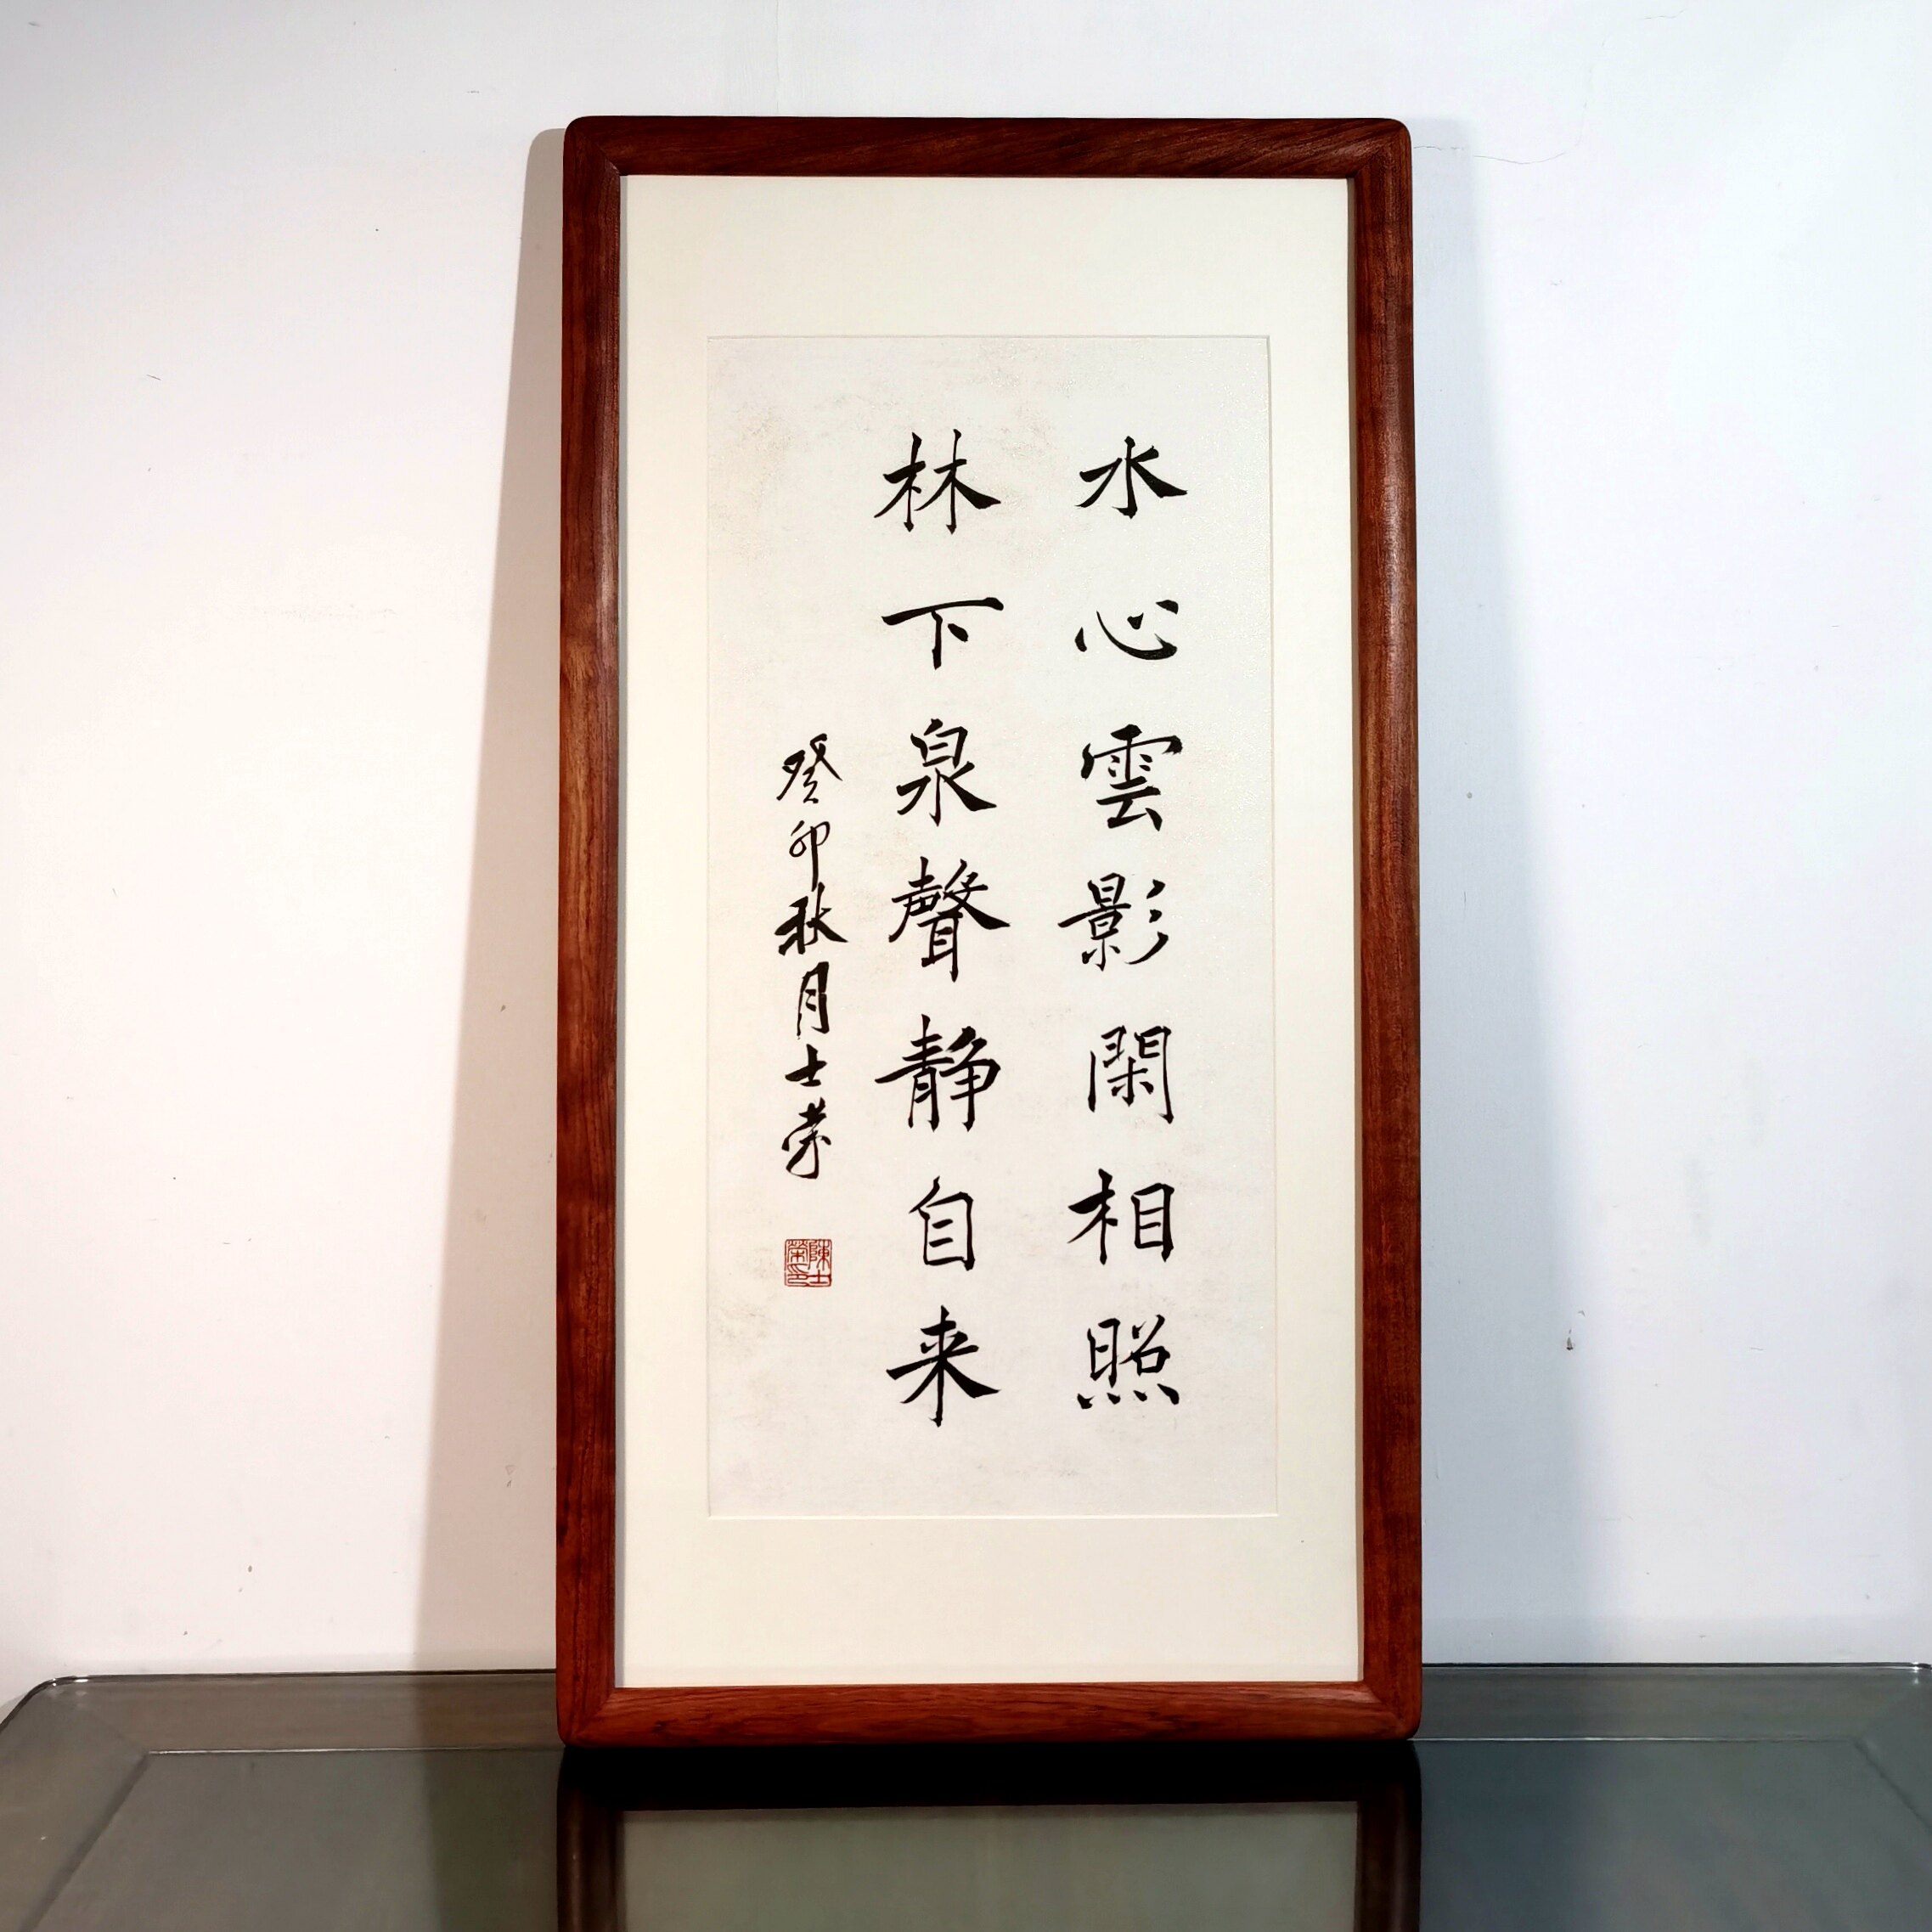 水心雲影閑相照
林下泉聲静自来
癸卯秋月士荣
陳士榮印